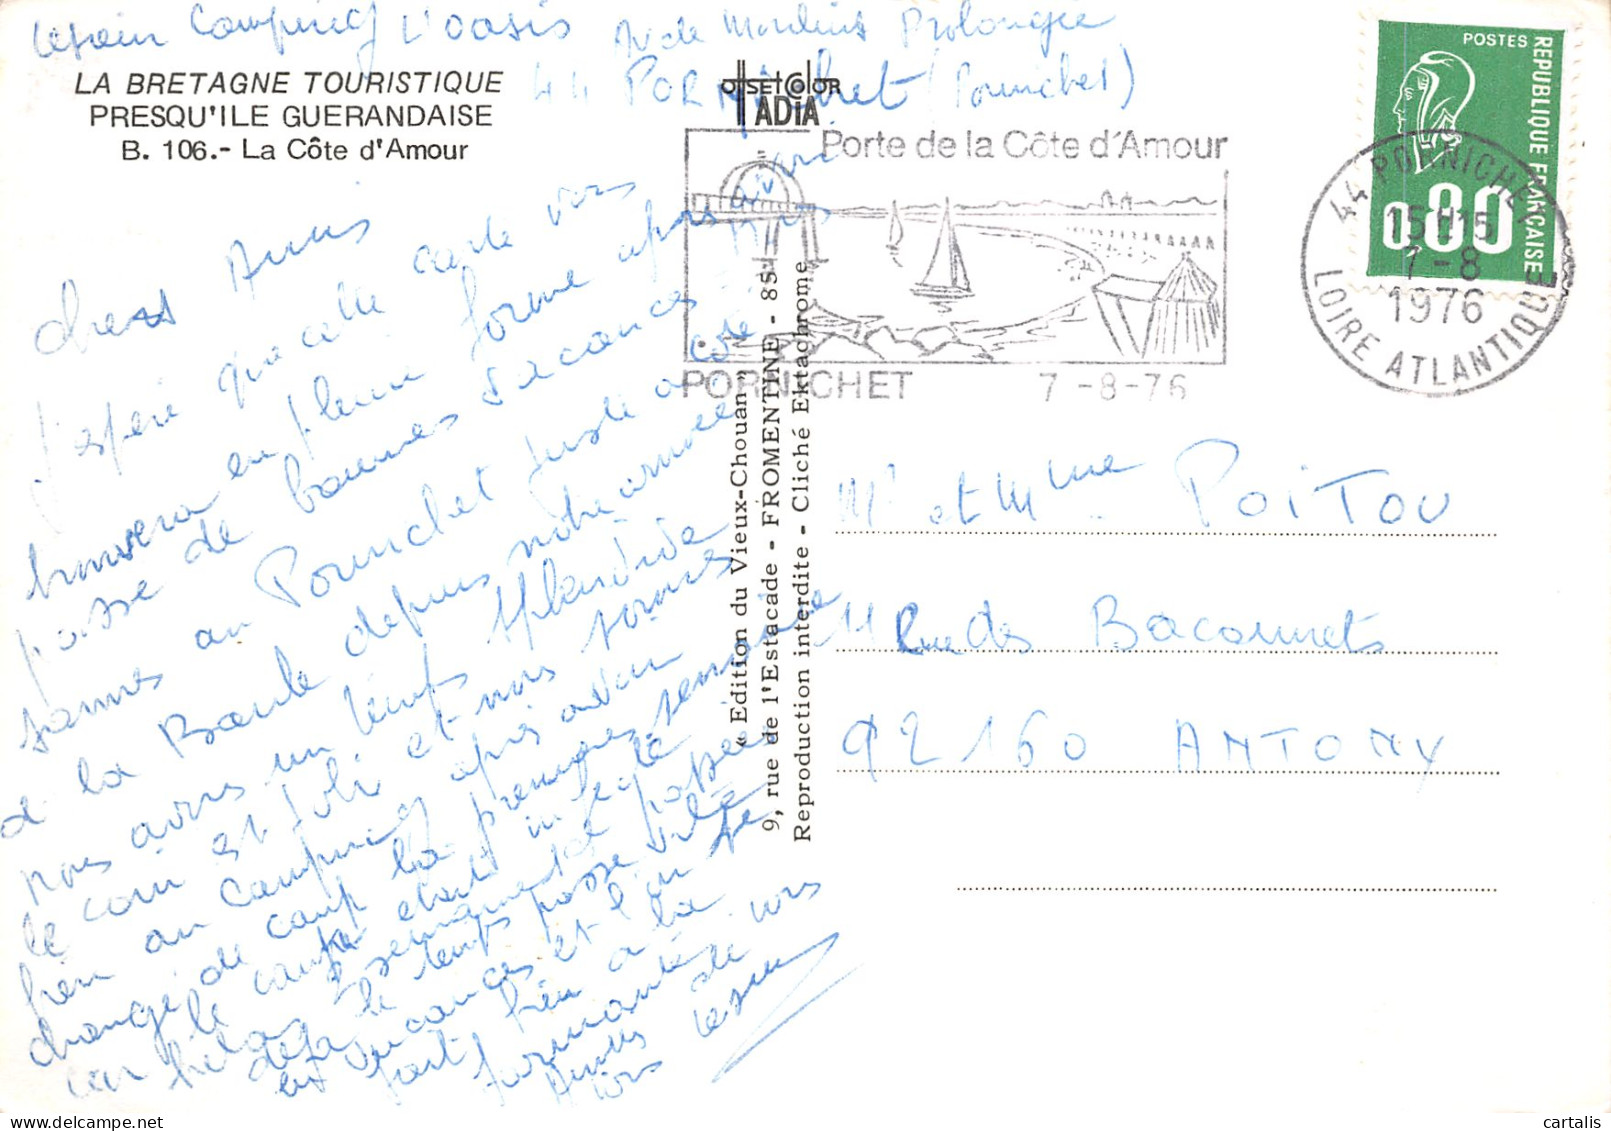 Camping L'Oasis Av de Moulins Prolongée
44 PORNichet (Pornichet)
LA BRETAGNE TOURISTIQUE
PRESQU'ILE GUERANDAISE
B. 106.- La Côte d'Amour
OFFSETCOLOR
IADIA
Porte de la Côte d'Amour
PORNICHET 7-8-76
POSTES
REPUBLIQUE FRANCAISE
0,80
44 PORNICHET
15H15
7-8
1976
LOIRE ATLANTIQUE
chers Amis
j'espère que cette carte vous
trouvera en pleine forme après avoir
passé de bonnes vacances Nous
sommes au Pornichet juste a coté
de la Baule depuis notre arrivée
nous avons un temps splandide
le coin est joli et nous sommes
bien au camping après avoir
changé de camp la première semaine
car le camp était infecté
hélas les semaines passées
déjà le temps passe vite
en vacances et l'on se
fait bien a la
« Edition du Vieux-Chouan »
9, rue de l'Estacade - FROMENTINE - 85
Reproduction interdite - Cliché Ektachrome
Mr et Mme POITOU
11 Rue des Baconnets
92160 ANTONY